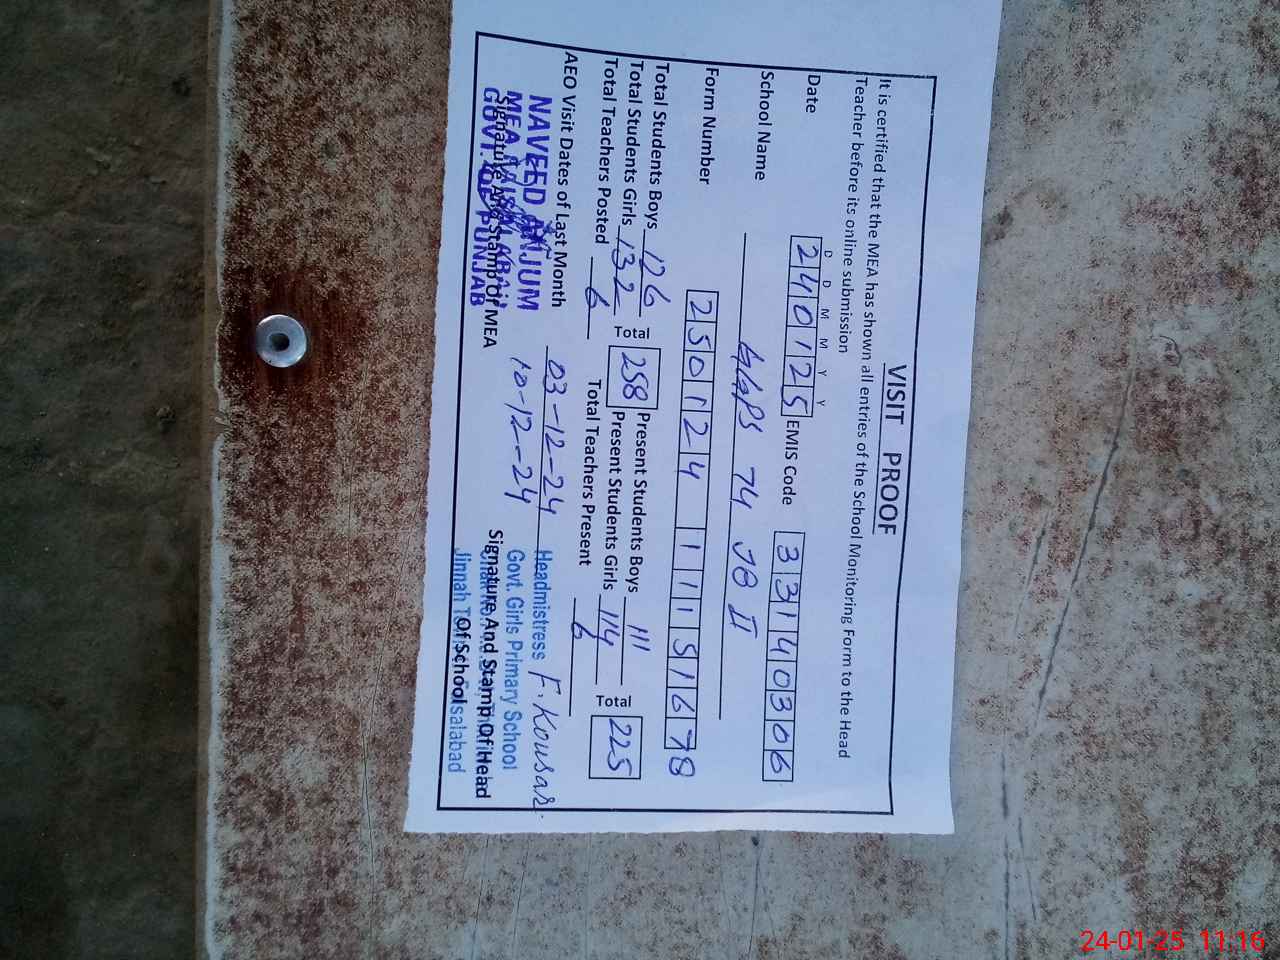 VISIT PROOF
It is certified that the MEA has shown all entries of the School Monitoring Form to the Head
Teacher before its online submission
D D M M Y Y
Date 240125 EMIS Code 33140306
School Name GGPS 74 JB II
Form Number 25012411151678
Total Students Boys 126 Total 258 Present Students Boys 111 Total 225
Total Students Girls 132 Present Students Girls 114
Total Teachers Posted 6 Total Teachers Present 6
AEO Visit Dates of Last Month 03-12-24
10-12-24
NAVEED ANJUM
MEA
GOVT. OF PUNJAB
Signature And Stamp Of MEA
F. Kousar
Headmistress
Govt. Girls Primary School
Jinnah
Faisalabad
Signature And Stamp Of Head
Of School
24-01-25 11:16